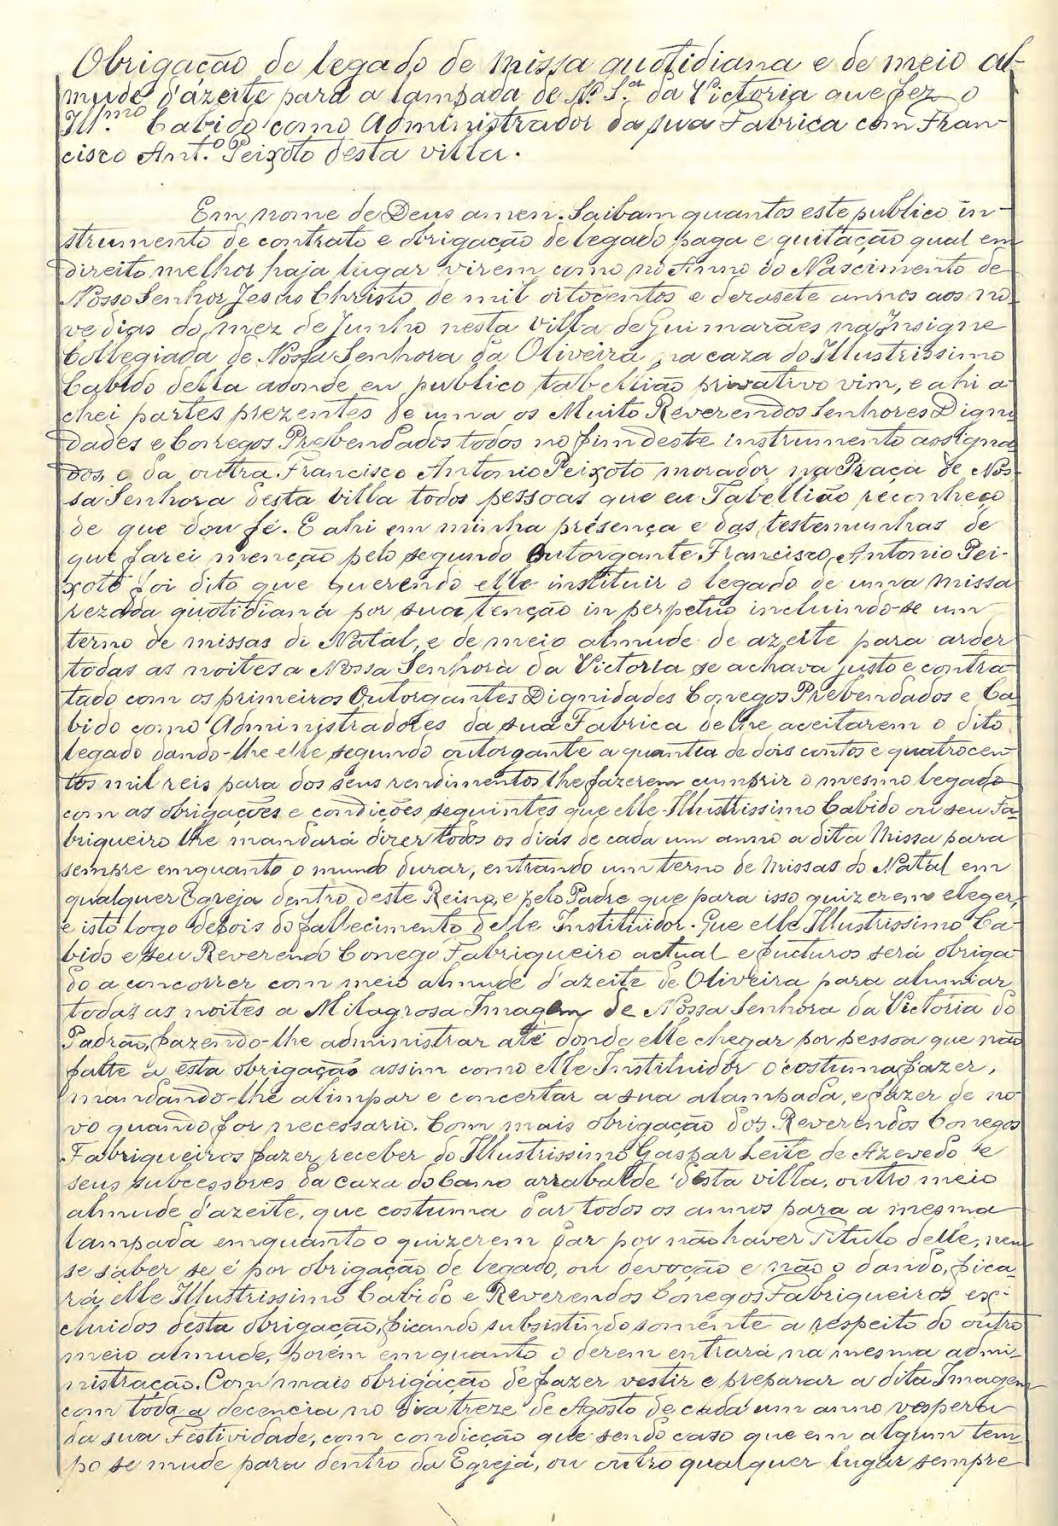 Obrigação de legado de missa quotidiana e de meio al-
mude d'azeite para a lampada de N. S.ª da Victoria que fez o
Ill.mo Cabido como Administrador da sua Fabrica com Fran-
cisco Ant.º Peixoto desta villa.
Em nome de Deus amen. Saibam quantos este publico in-
strumento de contrato e obrigação de legado paga e quitação qual em
direito melhor haja lugar virem como no Anno do Nascimento de
Nosso Senhor Jesus Christo de mil oitocentos e dezasete annos aos no-
ve dias do mez de Junho nesta Villa de Guimarães na Insigne
Collegiada de Nossa Senhora da Oliveira, na caza do Illustrissimo
Cabido della adonde eu publico tabellião privativo vim, e ahi a-
chei partes prezentes de uma os Muito Reverendos Senhores Digni-
dades e Conegos Prebendados todos no fim deste instrumento assigna-
dos e da outra Francisco Antonio Peixoto morador na Praça de Nos-
sa Senhora desta villa todos pessoas que eu Tabellião reconheço
de que dou fé. E ahi em minha presença e das testemunhas de
que farei menção pelo segundo Outorgante Francisco Antonio Pei-
xoto foi dito que querendo elle instituir o legado de uma missa
rezada quotidiana por sua tenção in perpetuo incluindo-se um
terno de missas di Natal, e de meio almude de azeite para arder
todas as noites a Nossa Senhora da Victoria se achava justo e contra-
tado com os primeiros Outorgantes Dignidades Conegos Prebendados e Ca-
bido como Administradores da sua Fabrica de lhe aceitarem o dito
legado dando-lhe elle segundo outorgante a quantia de dois contos e quatrocen-
tos mil reis para dos seus rendimentos lhe fazerem cumprir o mesmo legado
com as obrigações e condições seguintes que elle Illustrissimo Cabido ou seu Fa-
briqueiro lhe mandará dizer todos os dias de cada um anno a dita Missa para
sempre emquanto o mundo durar, entrando um terno de Missas do Natal em
qualquer Egreja dentro deste Reino, e pelo Padre que para isso quizerem eleger,
e isto logo depois do fallecimento delle Instituidor. Que elle Illustrissimo Ca-
bido e seu Reverendo Conego Fabriqueiro actual e futuros será obriga-
do a concorrer com meio almude d'azeite de Oliveira para alumiar
todas as noites a Milagrosa Imagem de Nossa Senhora da Victoria do
Padrão, fazendo-lhe administrar até donde elle chegar por pessoa que não
falte a esta obrigação assim como elle Instituidor o costuma fazer,
mandando-lhe alimpar e concertar a sua alampada, e fazer de no-
vo quando for necessario. Com mais obrigação dos Reverendos Conegos
Fabriqueiros fazer receber do Illustrissimo Gaspar Leite de Azevedo e
seus subcessores da caza do Cano arrabalde desta villa, outro meio
almude d'azeite, que costuma dar todos os annos para a mesma
lampada emquanto o quizerem dar por não haver titulo delle, nem
se saber se é por obrigação de legado, ou devoção e não o dando, fica-
rá elle Illustrissimo Cabido e Reverendos Conegos Fabriqueiros ex-
cluidos desta obrigação, ficando subsistindo somente a respeito do outro
meio almude, porem emquanto o derem entrará na mesma admi-
nistração. Com mais obrigação de fazer vestir e preparar a dita Imagem
com toda a decencia no dia treze de Agosto de cada um anno vespera
da sua Festividade, com condicção que sendo caso que em algum tem-
po se mude para dentro da Egreja, ou outro qualquer lugar sempre